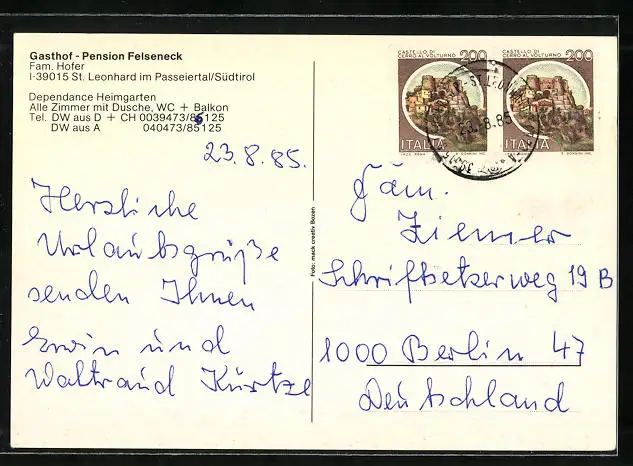 Gasthof - Pension Felseneck
Fam. Hofer
I-39015 St. Leonhard im Passeiertal/Südtirol
Dependance Heimgarten
Alle Zimmer mit Dusche, WC + Balkon
Tel. DW aus D + CH 0039473/86125
DW aus A 040473/85125
23.8.85.
Herzliche
Urlaubsgrüße
senden Ihnen
Erwin und
Waltraud Kurtze
Foto: mack creativ Bozen
CASTELLO DI CERRO AL VOLTURNO 200
ITALIA
CASTELLO DI CERRO AL VOLTURNO 200
ITALIA
23.8.85
Fam.
Ziemer
Schriftsetzerweg 19 B
1000 Berlin 47
Deutschland